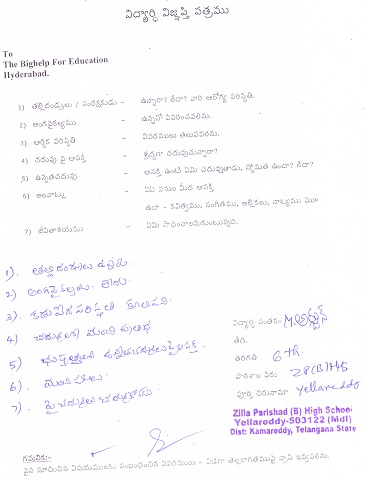 విద్యార్థి విజ్ఞప్తి పత్రము
To
The Bighelp For Education
Hyderabad.
1) తల్లిదండ్రులు / సంరక్షకుడు - ఉన్నారా? లేదా? వారి ఆరోగ్య పరిస్థితి.
2) అంగవైకల్యము - ఉన్నచో వివరించవలెను.
3) ఆర్థిక పరిస్థితి - వివరములు తెలుపవలెను.
4) చదువు పై ఆసక్తి - శ్రద్ధగా చదువుచున్నారా?
5) ఉన్నతచదువు - ఆసక్తి ఉంటే ఏమి చదువుతాడు, స్తోమత ఉందా? లేదా?
6) అలవాట్లు - ఏఏ పనుల మీద ఆసక్తి.
ఉదా - కవిత్వము, సంగీతము, అల్లికలు, నాట్యము మొ॥
7) జీవితాశయము - ఏమి సాధించాలనుకుంటున్నది.
1). తల్లిదండ్రులు ఉన్నారు.
2) అంగవైకల్యం లేదు.
3).
4) చదువులో మంచి ప్రతిభ
5)
6).
7). పై చదువులు
విద్యార్థి సంతకం: M.
తేది.
తరగతి 6th.
పాఠశాల పేరు: ZP(B)HS
పూర్తి చిరునామా Yellareddy
Zilla Parishad (B) High School
Yellareddy-503122 (Mdl)
Dist: Kamareddy, Telangana State
గమనిక:-
పైన సూచించిన విషయములకు సంబంధించిన వివరములు - విడిగా తెల్లకాగితముపై వ్రాసి ఇవ్వవలెను.